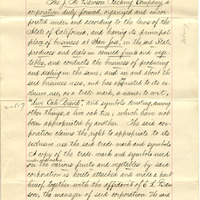 The J. H. Dawson Packing Company, a
corporation duly formed, organized and incor-
porated under and according to the laws of the
State of California, and having its principal
place of business at San José, in the said State,
produces and deals in canned fruits and vege-
tables, and conducts the business of producing
and dealing in the same; and in and about the
said business uses, and has adopted to its ex-
clusive use, as a trade-mark, a name to wit,
"Live Oak Brand", and symbols denoting, among
other things, a live oak tree, which have not
been appropriated by another. The said cor-
poration claims the right to appropriate to its
exclusive use the said trade mark and symbols.
A copy of the trade mark and symbols used
on the various fruits and vegetables by said
corporation is hereto attached and made a part
hereof together with the affidavit of E. L. Daw-
son, the manager of said corporation. The said